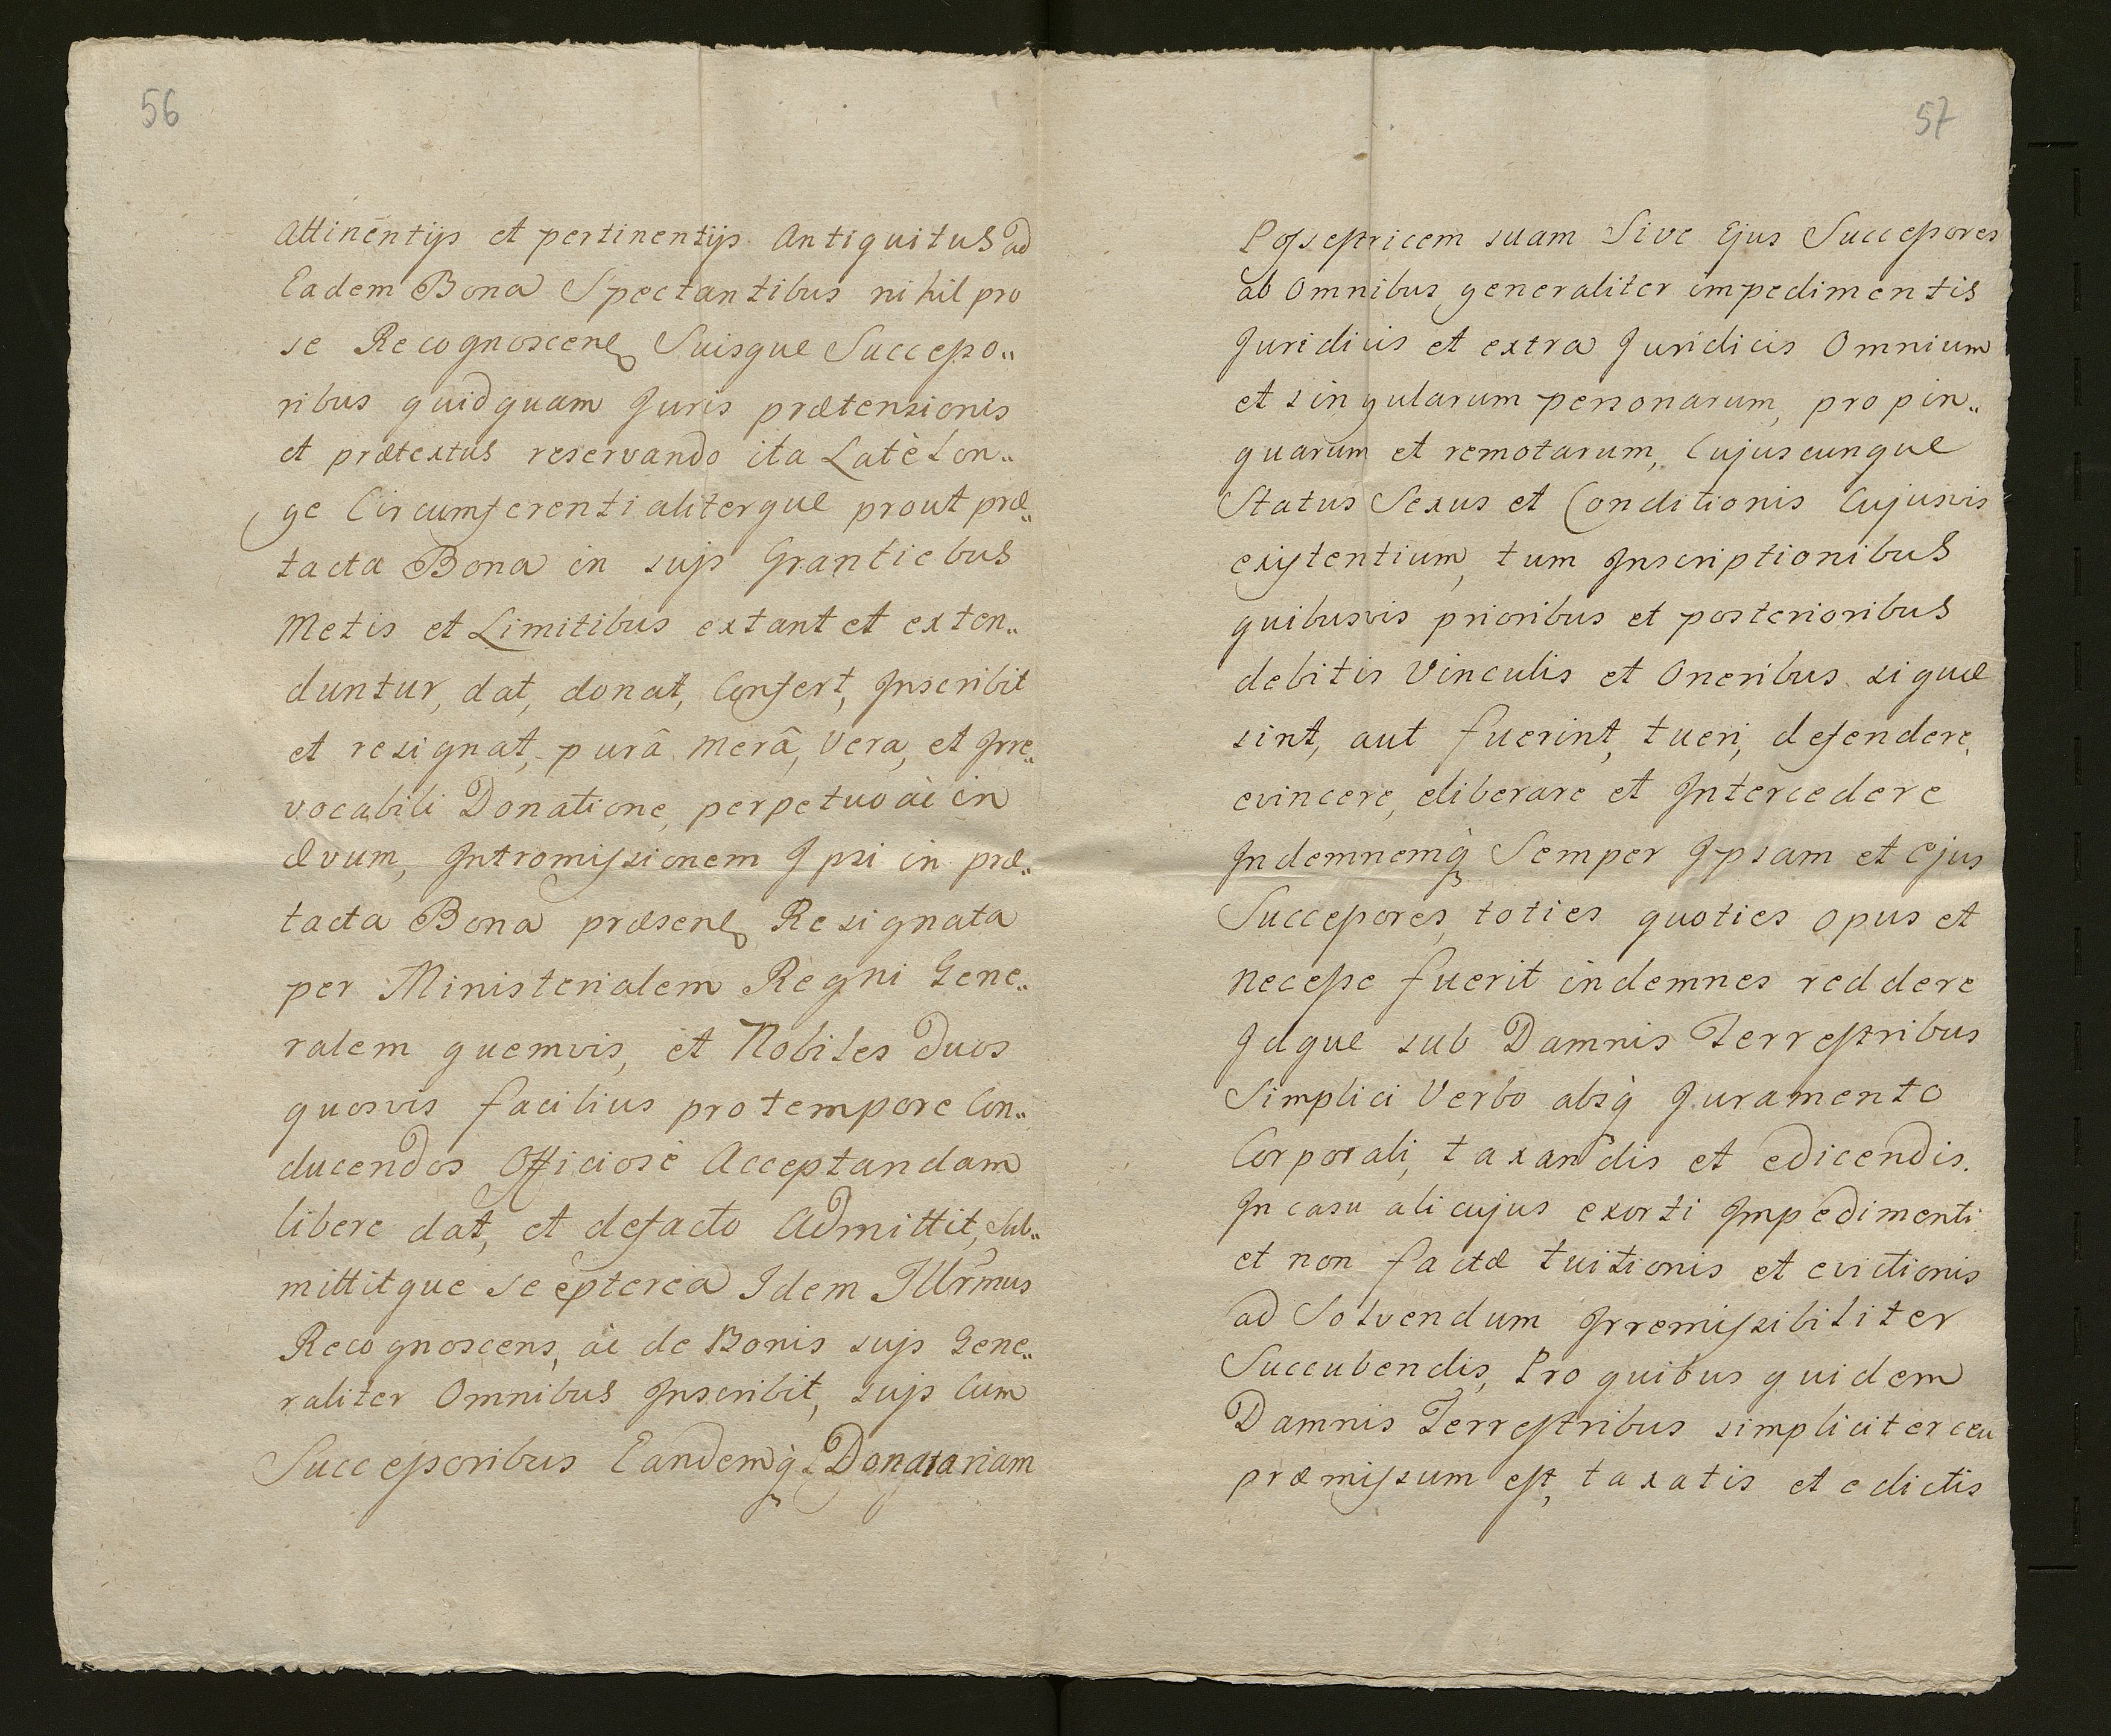 56
Attinentijs et pertinentijs Antiquitus ad
Eadem Bona Spectantibus nihil pro
se Recognoscen. Suisque Successo„
ribus quidquam Juris prætensionis
et prætextus reservando ita Latè Lon„
ge Circumferentialiterque prout præ„
tacta Bona in suis Granitiebus
Metis et Limitibus extant et exten„
duntur, dat, donat, Confert, Inscribit
et resignat, purâ merâ, Vera, et Irre„
vocabili Donatione, perpetuo àc in
ævum, Intromissionem Ipsi in præ„
tacta Bona præsen. Resignata
per Ministerialem Regni Gene„
ralem quemvis, et Nobiles duos
quosvis facilius protempore Con„
ducendos Officiosè Acceptandam
libere dat, et defacto Admittit, Sub„
mittitque se èpterea Idem Illrmus
Recognoscens, àc de Bonis suis Gene„
raliter Omnibus Inscribit, suis Cum
Successoribus Eandemq̀ Donatariam
57
Possestricem suam Sive Ejus Successores
ab Omnibus generaliter impedimentis
Juridicis et extra Juridicis Omnium
et singularum personarum, propin„
quarum et remotarum, Cujuscunque
Status Sexus et Conditionis Cujusvis
existentium, tum Inscriptionibus
quibusvis prioribus et posterioribus
debitis Vinculis et Oneribus si quæ
sint, aut fuerint, tueri, defendere,
evincere, eliberare et Intercedere
Indemnemq̀ Semper Ipsam et ejus
Successores, toties quoties opus et
necesse fuerit indemnes reddere
Idque sub Damnis Terrestribus
Simplici Verbo absq̀ Juramento
Corporali, taxandis et edicendis.
In casu alicujus exorti Impedimenti
et non factæ tuitionis et evictionis
ad Solvendum Irremissibiliter
Succubendis, Pro quibus quidem
Damnis Terrestribus simpliciter ceu
præmissum est, taxatis et edictis